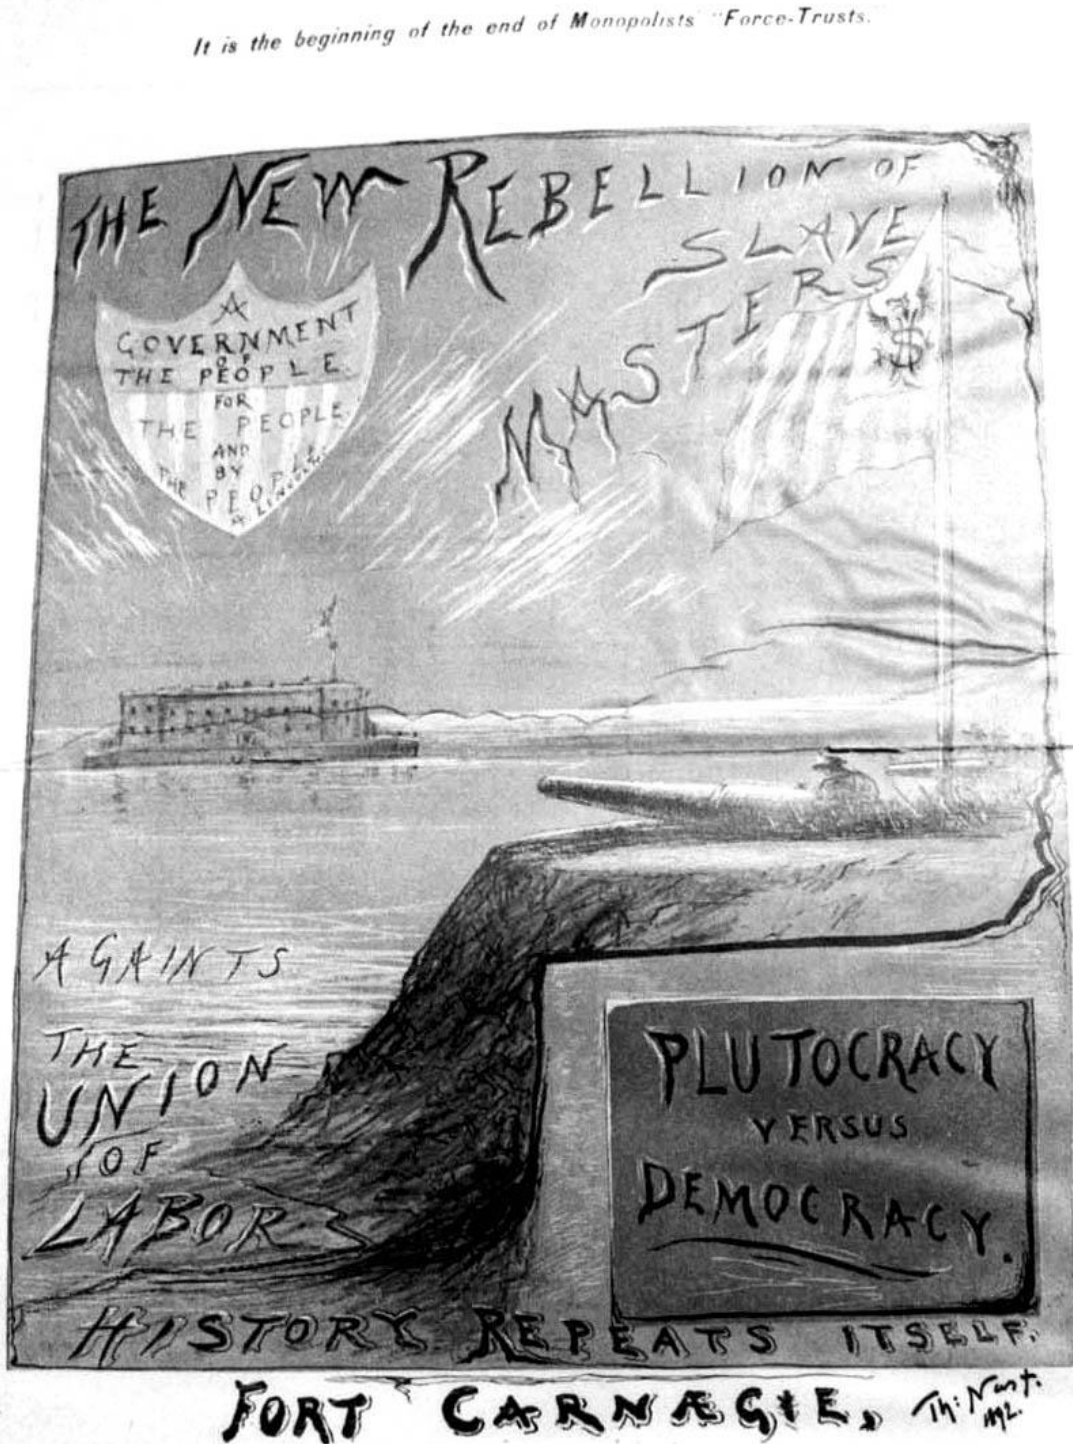 It is the beginning of the end of Monopolists' "Force-Trusts.
THE NEW REBELLION OF
SLAVE
MASTERS
A
GOVERNMENT
OF
THE PEOPLE.
FOR
THE PEOPLE.
AND
BY
THE PEOPLE
A LINCOLN.
$
AGAINTS
THE
UNION
OF
LABOR
PLUTOCRACY
VERSUS
DEMOCRACY.
HISTORY REPEATS ITSELF.
FORT CARNÆGIE.
Th: Nast.
1892.